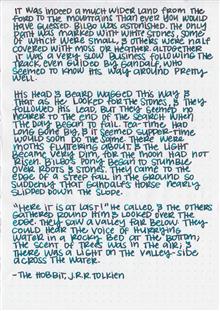 It was indeed a much wider land from the
ford to the mountains than ever you would
have guessed. Bilbo was astonished. The only
path was marked with white stones, some
of which were small, & others were half
covered with moss or heather. Altogether
it was a very slow business following the
track, even guided by Gandalf, who
seemed to know his way around pretty
well.
His head & beard wagged this way &
that as he looked for the stones, & they
followed his lead, but they seemed no
nearer to the end of the search when
the day began to fail. Tea-time had
long gone by, & it seemed supper-time
would soon do the same. There were
moths fluttering about, & the light
became very dim, for the moon had not
risen. Bilbo's pony began to stumble
over roots & stones. They came to the
edge of a steep fall in the ground so
suddenly that Gandalf's horse nearly
slipped down the slope.
"Here it is at last!" he called, & the others
gathered round him & looked over the
edge. They saw a valley far below. They
could hear the voice of hurrying
water in a rocky bed at the bottom;
the scent of trees was in the air; &
there was a light on the valley-side
across the water.
-The Hobbit, J.R.R. Tolkien